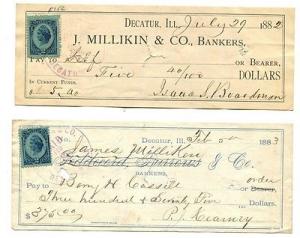 DECATUR, ILL. July 29 1882
J. MILLIKIN & CO., BANKERS,
PAY TO Self OR BEARER,
Five 40/100 DOLLARS
IN CURRENT FUNDS.
$5.40 Isaac S. Boardman
Decatur, Ill., Feb 1883
James Millikin & Co.
BANKERS,
order
Pay to Benj H Cassell or Bearer,
Three hundred & Seventy Five Dollars.
$375.00 P. J. Kearney